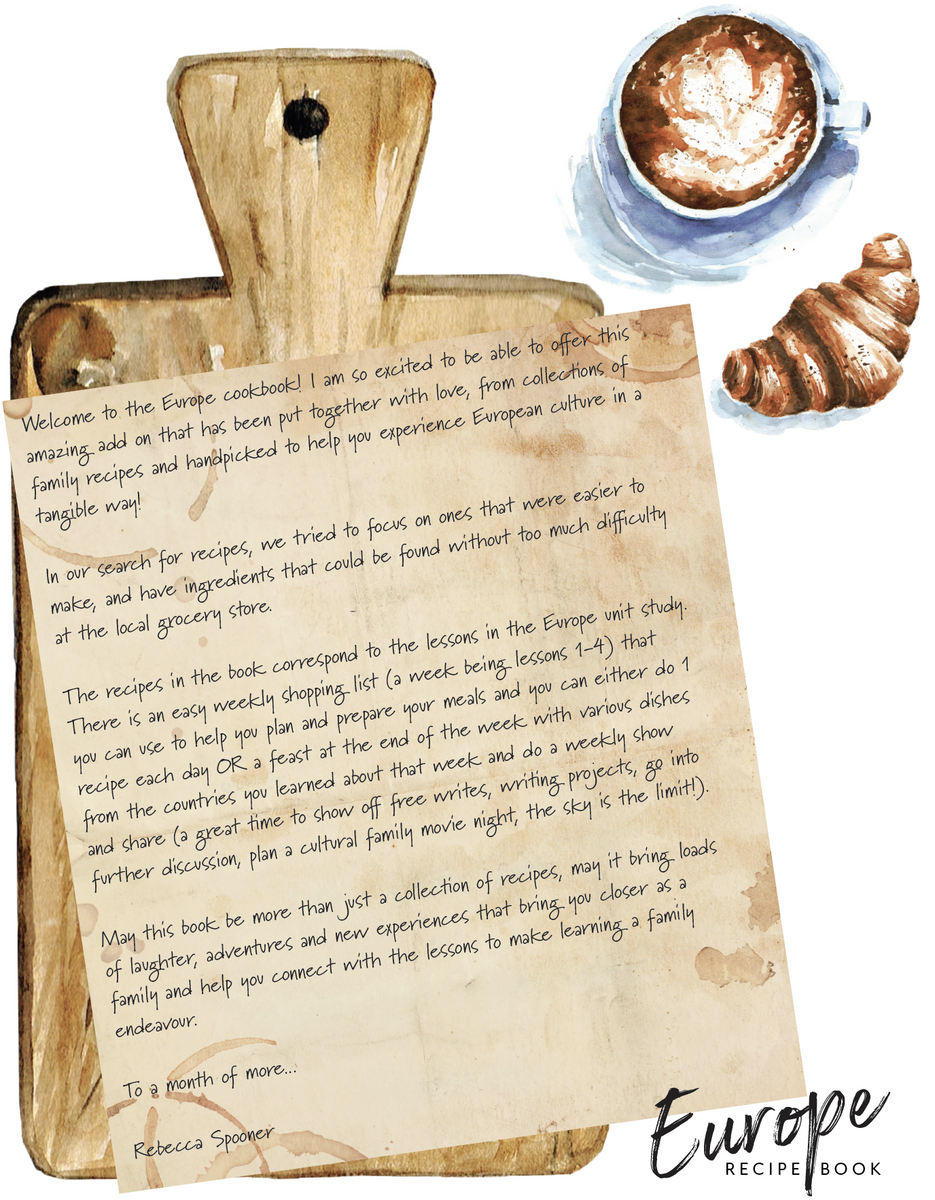 Welcome to the Europe cookbook! I am so excited to be able to offer this
amazing add on that has been put together with love, from collections of
family recipes and handpicked to help you experience European culture in a
tangible way!
In our search for recipes, we tried to focus on ones that were easier to
make, and have ingredients that could be found without too much difficulty
at the local grocery store.
The recipes in the book correspond to the lessons in the Europe unit study.
There is an easy weekly shopping list (a week being lessons 1-4) that
you can use to help you plan and prepare your meals and you can either do 1
recipe each day OR a feast at the end of the week with various dishes
from the countries you learned about that week and do a weekly show
and share (a great time to show off free writes, writing projects, go into
further discussion, plan a cultural family movie night, the sky is the limit!).
May this book be more than just a collection of recipes, may it bring loads
of laughter, adventures and new experiences that bring you closer as a
family and help you connect with the lessons to make learning a family
endeavour.
To a month of more...
Rebecca Spooner
Europe
RECIPE BOOK